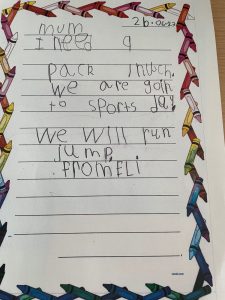 mum
I need a
pack lunch.
we are goin
to sports day.
we will run
jump.
from ELi